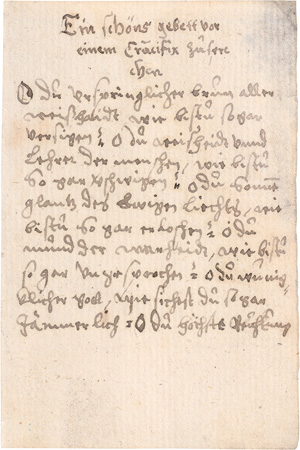 Ein schöns gebett vor
einem Crucifix zuspre
chen
O du urspringlicher brun aller
weishaidt wie bistu so gar
versigen = O du weisheidt vnnd
Lehrer der menschen, wie bistu
so gar gschwigen = O du Sonnen
glantz des Ewigen Liechts, wie
bistu so gar erloschen = O du
mund der warheidt, wie bistu
so gar Unge sprochen = O du
klicher gott, wie sichst du so gar
Jämmerlich = O du höchste